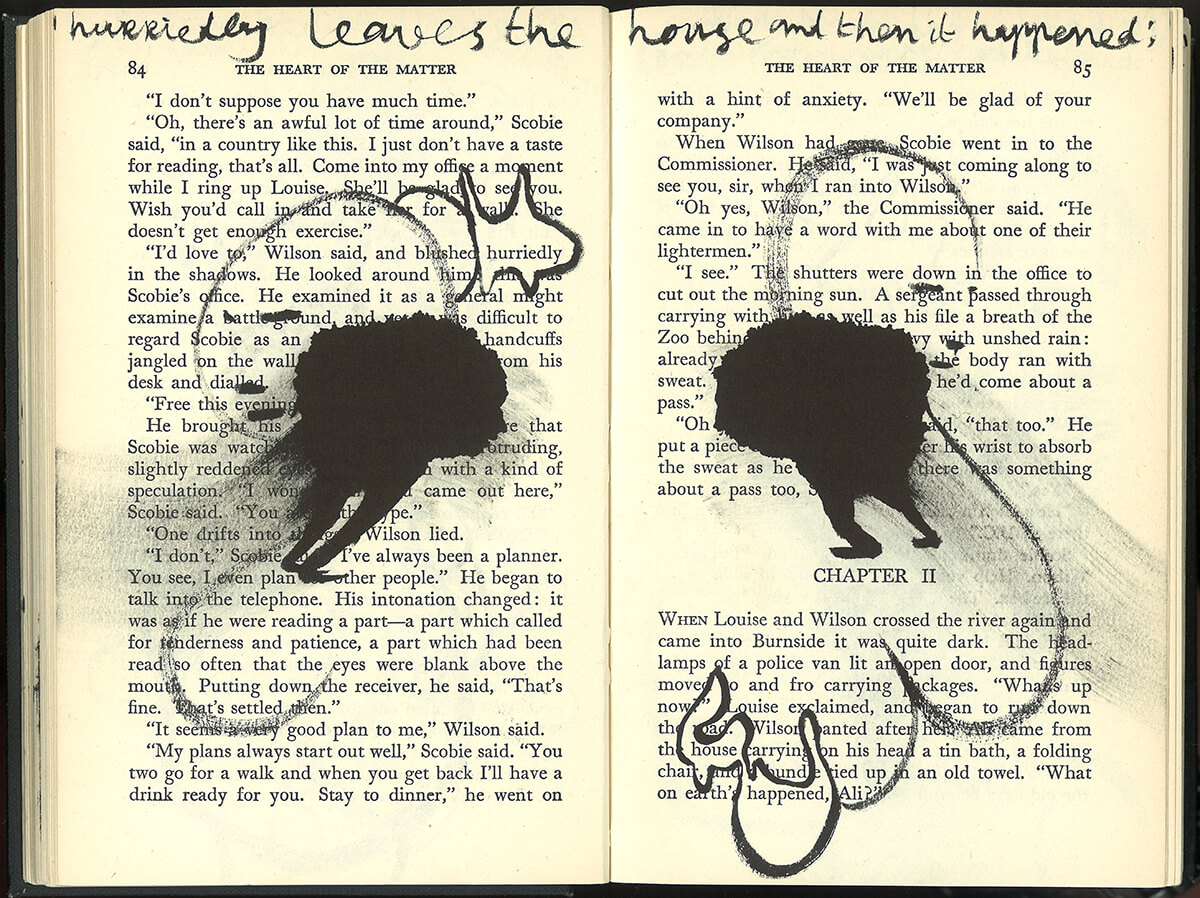 hurriedly leaves the house and then it happened:
84 THE HEART OF THE MATTER
"I don't suppose you have much time."
"Oh, there's an awful lot of time around," Scobie
said, "in a country like this. I just don't have a taste
for reading, that's all. Come into my office a moment
while I ring up Louise. She'll be glad to see you.
Wish you'd call in and take her for a walk. She
doesn't get enough exercise."
"I'd love to," Wilson said, and blushed hurriedly
in the shadows. He looked around him: this was
Scobie's office. He examined it as a general might
examine a battle-ground, and yet it was difficult to
regard Scobie as an handcuffs
jangled on the wall from his
desk and dialled.
"Free this evening
He brought his that
Scobie was watching protruding,
slightly reddened with a kind of
speculation. "I came out here,"
Scobie said. "You type."
"One drifts into Wilson lied.
"I don't," Scobie I've always been a planner.
You see, I even plan for other people." He began to
talk into the telephone. His intonation changed: it
was as if he were reading a part—a part which called
for tenderness and patience, a part which had been
read so often that the eyes were blank above the
mouth. Putting down the receiver, he said, "That's
fine. That's settled then."
"It seems a very good plan to me," Wilson said.
"My plans always start out well," Scobie said. "You
two go for a walk and when you get back I'll have a
drink ready for you. Stay to dinner," he went on
THE HEART OF THE MATTER 85
with a hint of anxiety. "We'll be glad of your
company."
When Wilson had gone Scobie went in to the
Commissioner. He said, "I was just coming along to
see you, sir, when I ran into Wilson."
"Oh yes, Wilson," the Commissioner said. "He
came in to have a word with me about one of their
lightermen."
"I see." The shutters were down in the office to
cut out the morning sun. A sergeant passed through
carrying with as well as his file a breath of the
Zoo behind with unshed rain:
already the body ran with
sweat. he'd come about a
pass."
"Oh said, "that too." He
put a piece his wrist to absorb
the sweat as he there was something
about a pass too,
CHAPTER II
WHEN Louise and Wilson crossed the river again and
came into Burnside it was quite dark. The head-
lamps of a police van lit an open door, and figures
moved to and fro carrying packages. "What's up
now?" Louise exclaimed, and began to run down
the road. Wilson panted after her. Ali came from
the house carrying on his head a tin bath, a folding
chair, and a bundle tied up in an old towel. "What
on earth's happened, Ali?"